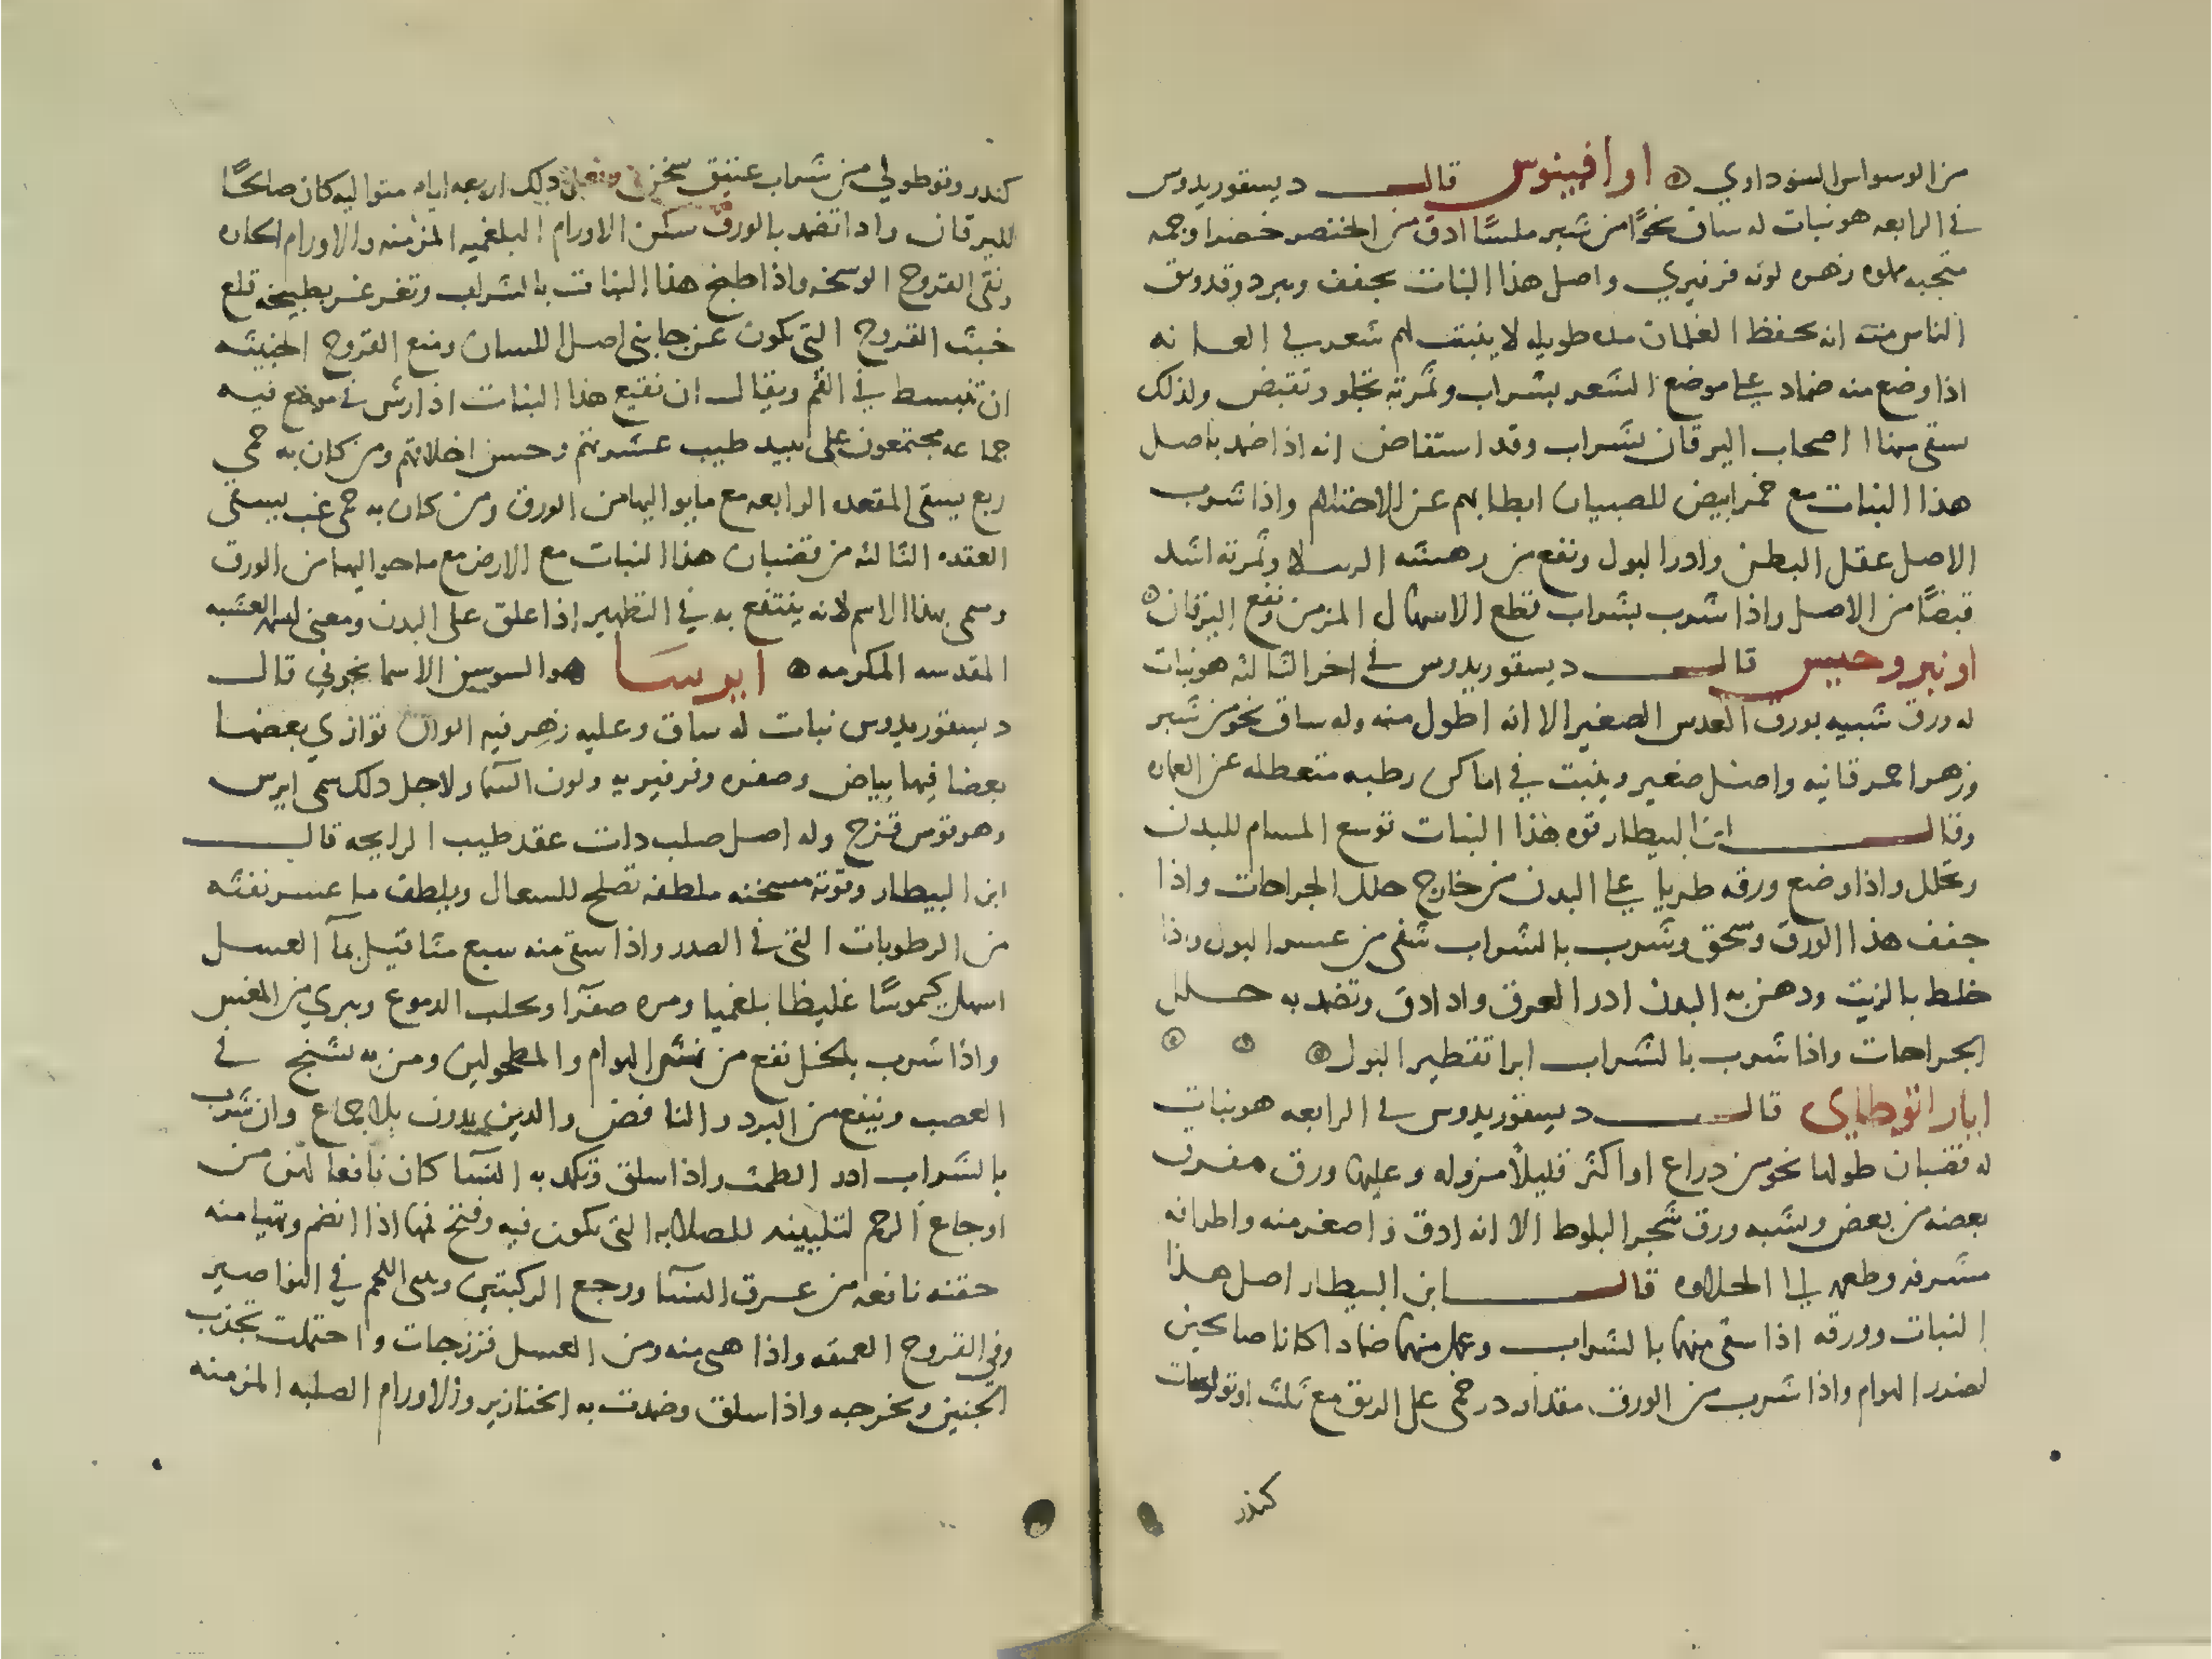 من الوسواس السوداوي ۞ اوافينوس قال ديسقوريدوس
في الرابعه هو نبات له ساق نحوًا من شبر ملسًا ادق من الخنصر خضرا وجمه
منحنيه ملوه زهره لونه فرفيري واصل هذا النبات يجفف ويبرد وقد وثق
الناس منه انه يحفظ الغلمان مده طويله لا ينبت لهم شعر في العانه
اذا وضع منه ضماد على موضع الشعر بشراب وثمرته تجلو وتقبض ولذلك
سقي منها اصحاب اليرقان بشراب وقد استفاض انه اذا ضمد باصل
هذا النبات مع خمر ابيض للصبيان ابطا بهم عن الاحتلام واذا شرب
الاصل عقل البطن وادر البول ونفع من نهشه الرتيلا وثمرته اشد
قبضًا من الاصل واذا شرب بشراب قطع الاسهال المزمن ونفع اليرقان ۞
اونبروحيس قال ديسقوريدوس في اخر الثالثه هو نبات
له ورق شبيه بورق العدس الصغير الا انه اطول منه وله ساق نحو من شبر
وزهر احمر قانيه واصل صغير وينبت في اماكن رطبه متعطله عن العماره
وقال ابن البيطار قوه هذا النبات توسع المسام للبدن
وتحلل واذا وضع ورقه طريا على البدن من خارج حلل الجراحات واذا
جفف هذا الورق وسحق وشرب بالشراب شفي من عسر البول واذا
خلط بالزيت ودهن به البدن ادر العرق واذا دق وتضمد به حلل
الجراحات واذا شرب بالشراب ابرا تقطير البول ۞ ۞ ۞
ايارانوطاي قال ديسقوريدوس في الرابعه هو نبات
له قضبان طولها نحو من دراع او اكثر قليلًا مزوله وعليها ورق مفرق
بعضه من بعض ويشبه ورق شجر البلوط الا انه ادق و اصغر منه واطرافه
مشرفه وطعمه الى الحلاوه قال ابن البيطار اصل هذا
النبات وورقه اذا سقي منها بالشراب وعمل منهما ضمادا كانا صالحين
لضرر الهوام واذا شرب من الورق مقدار درخمي على الريق مع ثلث اوثولوسات
كندر
كندر وقوطولي من شراب عتيق سخن وفعل ذلك اربعه ايام متواليه كان صالحًا
لليرقان واذا تضمد بالورق سكن الاورام البلغميه المزمنه والاورام الحاره
ونقى القروح الوسخه واذا طبخ هذا النبات بالشراب وتغرغر بطبيخه قلع
خبث القروح التي تكون عن جانبي اصل اللسان ومنع القروح الخبيثه
ان تنبسط في الفم ويقال ان نقيع هذا النبات اذا رش في موضع فيه
جماعه مجتمعون على نبيد طيب عشرتهم وحسن اخلاقهم ومن كان به حمي
ربع يسقى العقده الرابعه مع ما يواليها من الورق ومن كان به حمى غب يسقى
العقده الثالثه من قضبان هذا النبات مع الارض مع ما حواليها من الورق
وسمى بهذا الاسم لانه ينتفع به في التطهير اذا علق على البدن ومعنى اسمه العشبه
المقدسه المكرمه ۞ ايرسَا هو السوسن الاسمانجوني قال
ديسقوريدوس نبات له ساق وعليه زهر فيه الوان توازي بعضها
بعضا فيها بياض وصفره وفرفيريه ولون السما ولاجل دلك سمي ايرس
وهو قوس قزح وله اصل صلب دات عقد طيب الرايحه قال
ابن البيطار وقوته مسخنه ملطفه تصلح للسعال ويلطف ما عسر نفثه
من الرطوبات التي في الصدر واذا سقي منه سبع مثاقيل بمآ العسل
اسهل كيموسًا غليظا بلغميا ومره صفرآ ويجلب الدموع ويبري من المغس
واذا شرب بالخل نفع من نهش الهوام والمطحولين ومن به تشنج في
العصب وينفع من البرد والنافض والدين يدرون بلا جماع وان شرب
بالشراب ادر الطمث واذا سلق وتكمد به النسآ كان نافعا لهن من
اوجاع الرحم لتليينه للصلابه التى تكون فيه وفتح فمها اذا انضم وتهيا منه
حقنه نافعه من عرق النسآ ووجع الركبتين وبنى اللحم في النواصير
وفي القروح العمقه واذا هيي منه ومن العسل فرزجات واحتملت تجذب
الجنين وتخرجه واذا سلق وضمدت به الخنازير والاورام الصلبه المزمنه